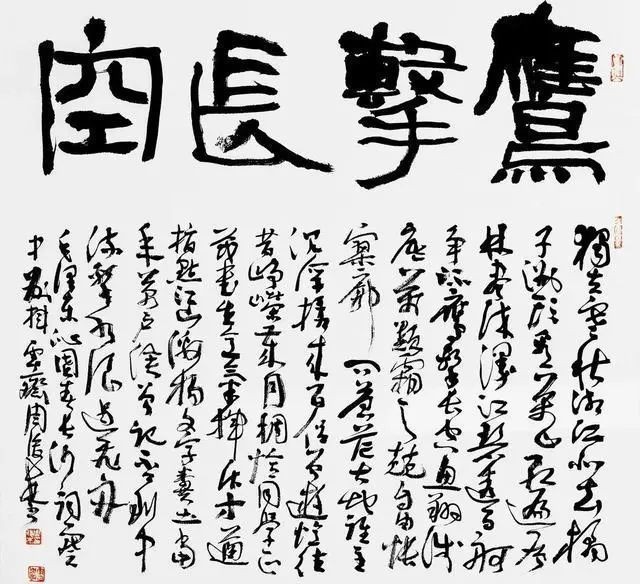 鷹擊長空
獨立寒秋湘江北去橘
子洲頭看萬山紅遍層
林盡染漫江碧透百舸
爭流鷹擊長空魚翔淺
底萬類霜天競自由悵
寥廓問蒼茫大地誰主
沉浮攜來百侶曾遊憶往
昔崢嶸歲月稠恰同學正
茂書生意氣揮斥方遒
指點江山激揚文字糞土當
年萬戶侯曾記否到中
流擊水浪遏飛舟
毛澤東沁園春長沙詞
周俊杰